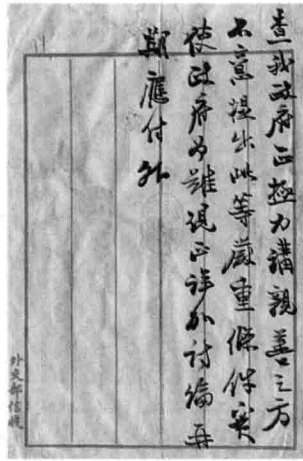 查我政府正極力講親善之方
不意提出此等嚴重條件實
使政府為難現正詳加討論再
期應付外
外交部信箋